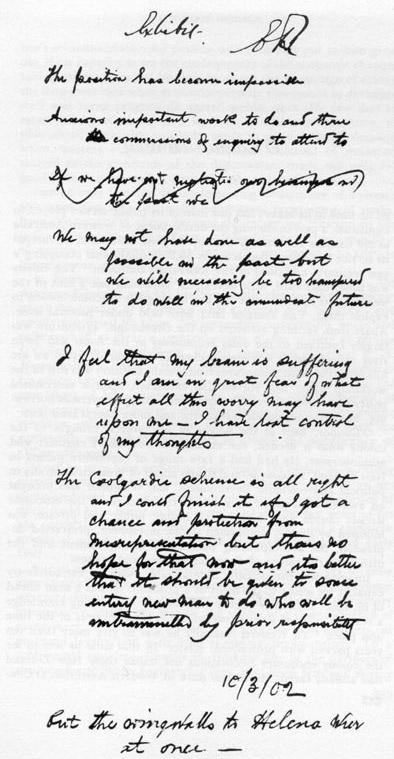 Exhibit.
The position has become impossible
Anxious important work to do and three
commissions of enquiry to attend to
If we have not our in
the past we
We may not have done as well as
possible in the past but
we will necessarily be too hampered
to do well in the immediate future
I feel that my brain is suffering
and I am in great fear of what
effect all this worry may have
upon me — I have lost control
of my thoughts
The Coolgardie scheme is all right
and I could finish it if I got a
chance and protection from
misrepresentation but theres no
hope for that now and its better
that it should be given to some
entirely new man to do who will be
untrammelled by prior responsibility
10/3/02
Put the wingwalls to Helena Weir
at once —